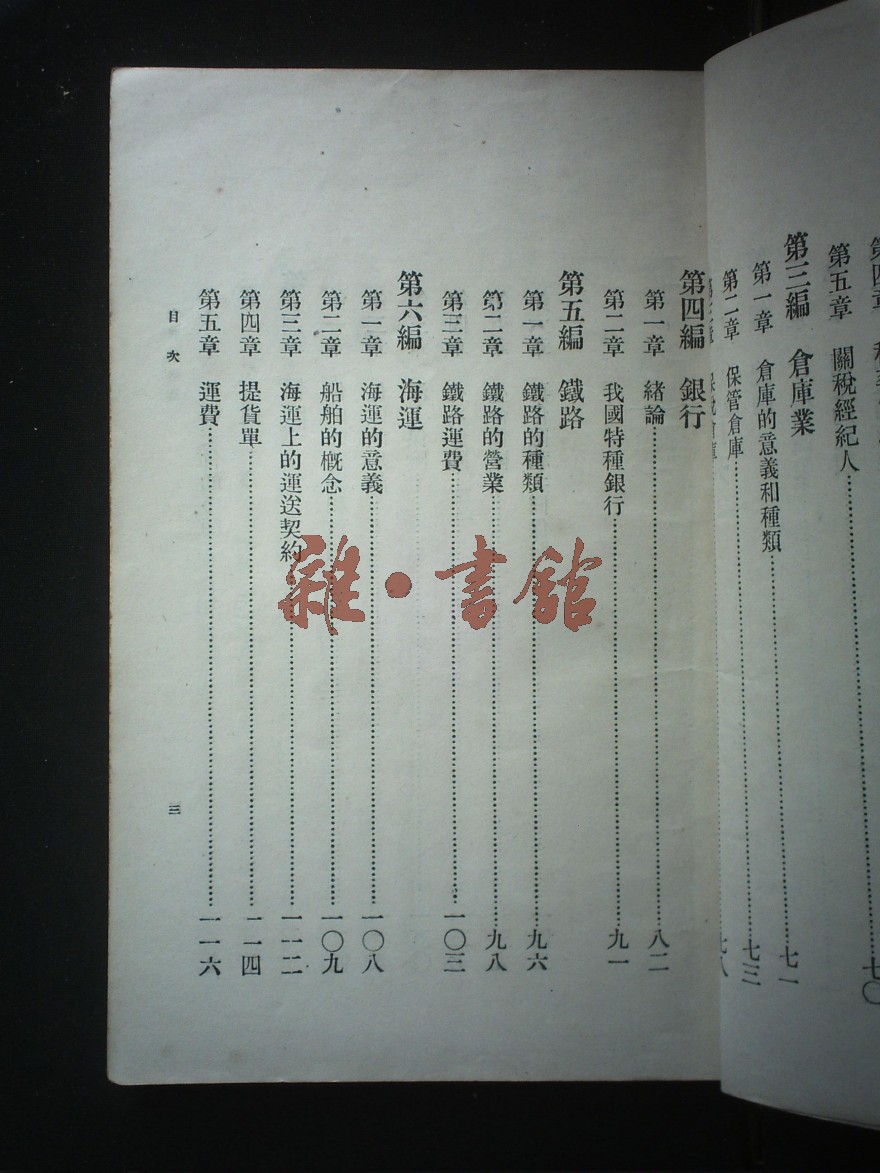 第五章 關稅經紀人
七〇
第三編 倉庫業
第一章 倉庫的意義和種類 七一
第二章 保管倉庫 七三
七八
第四編 銀行
第一章 緒論 八二
第二章 我國特種銀行 九一
第五編 鐵路
第一章 鐵路的種類 九六
第二章 鐵路的營業 九八
第三章 鐵路運費 一〇三
第六編 海運
第一章 海運的意義 一〇八
第二章 船舶的概念 一〇九
第三章 海運上的運送契約 一一二
第四章 提貨單 一一四
第五章 運費 一一六
目次
三
雜·書館